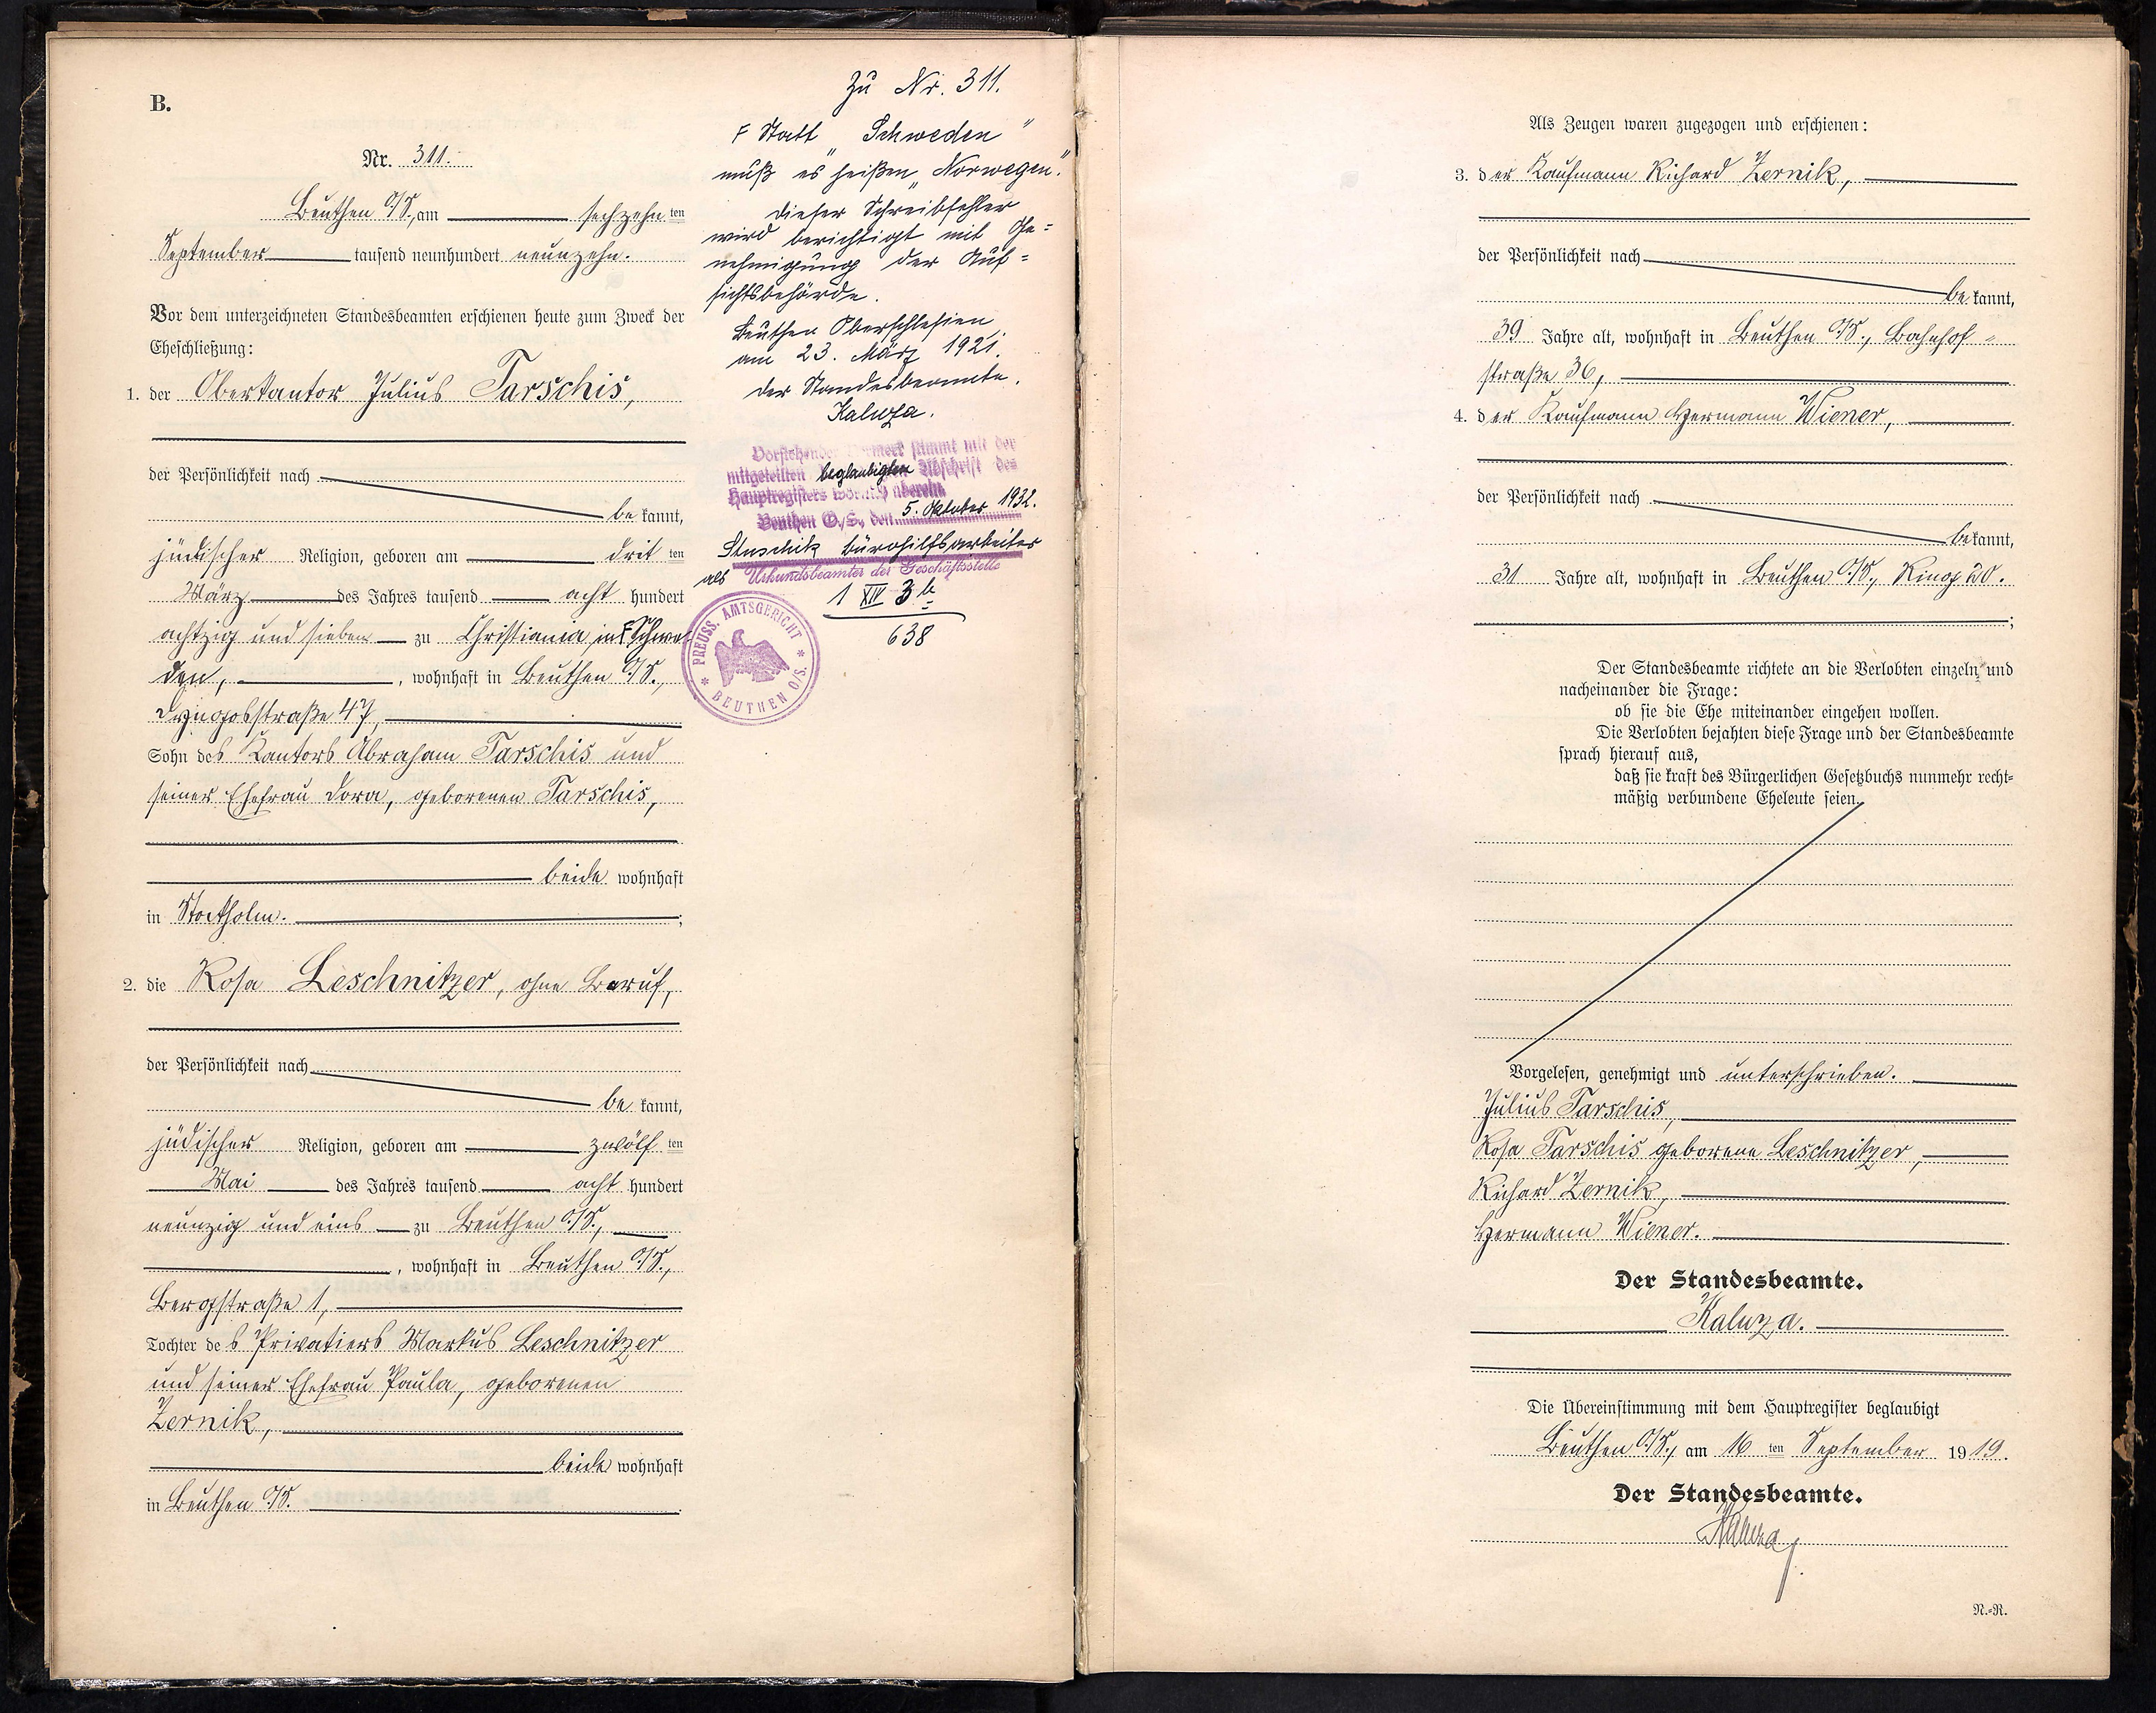 B.
Nr. 311.
Beuthen O/S., am sechzehn ten
September tausend neunhundert neunzehn.
Vor dem unterzeichneten Standesbeamten erschienen heute zum Zweck der
Eheschließung:
1. der Oberkantor Julius Tarschis,
der Persönlichkeit nach
be kannt,
jüdischer Religion, geboren am drit ten
März des Jahres tausend acht hundert
achtzig und sieben zu Christiania, in F Schwe
den, , wohnhaft in Beuthen O/S.,
Dyngosstraße 47,
Sohn des Kantors Abraham Tarschis und
seiner Ehefrau Dora, geborenen Tarschis,
beide wohnhaft
in Stockholm. ;
2. die Rosa Leschnitzer, ohne Beruf,
der Persönlichkeit nach
be kannt,
jüdischer Religion, geboren am zwölf ten
Mai des Jahres tausend acht hundert
neunzig und eins zu Beuthen O/S.,
, wohnhaft in Beuthen O/S.,
Bergstraße 1,
Tochter des Privatiers Markus Leschnitzer
und seiner Ehefrau Paula, geborenen
Zernik,
beide wohnhaft
in Beuthen O/S. .
Zu Nr. 311.
F Statt "Schweden"
muß es heißen "Norwegen".
Dieser Schreibfehler
wird berichtigt mit Ge=
nehmigung der Auf=
sichtsbehörde.
Beuthen Oberschlesien,
am 23. März 1921.
Der Standesbeamte.
Kaluza.
Vorstehender Vermerk stimmt mit der
mitgeteilten beglaubigten Abschrift des
Hauptregisters wörtlich überein.
Beuthen O./S., den 5. Oktober 1932.
Bürohilfsarbeiter
als Urkundsbeamter der Geschäftsstelle
1 XIV 3 b
638
PREUSS. AMTSGERICHT
* BEUTHEN O/S. *
Als Zeugen waren zugezogen und erschienen:
3. der Kaufmann Richard Zernik,
der Persönlichkeit nach
be kannt,
39 Jahre alt, wohnhaft in Beuthen O/S., Bahnhof=
straße 36,
4. der Kaufmann Hermann Wiener,
der Persönlichkeit nach
be kannt,
31 Jahre alt, wohnhaft in Beuthen O/S., Ring 20.
;
Der Standesbeamte richtete an die Verlobten einzeln und
nacheinander die Frage:
ob sie die Ehe miteinander eingehen wollen.
Die Verlobten bejahten diese Frage und der Standesbeamte
sprach hierauf aus,
daß sie kraft des Bürgerlichen Gesetzbuchs nunmehr recht=
mäßig verbundene Eheleute seien.
Vorgelesen, genehmigt und unterschrieben.
Julius Tarschis,
Rosa Tarschis geborene Leschnitzer,
Richard Zernik,
Hermann Wiener.
Der Standesbeamte.
Kaluza.
Die Übereinstimmung mit dem Hauptregister beglaubigt
Beuthen O/S., am 16 ten September 1919.
Der Standesbeamte.
Kaluza
N.=R.